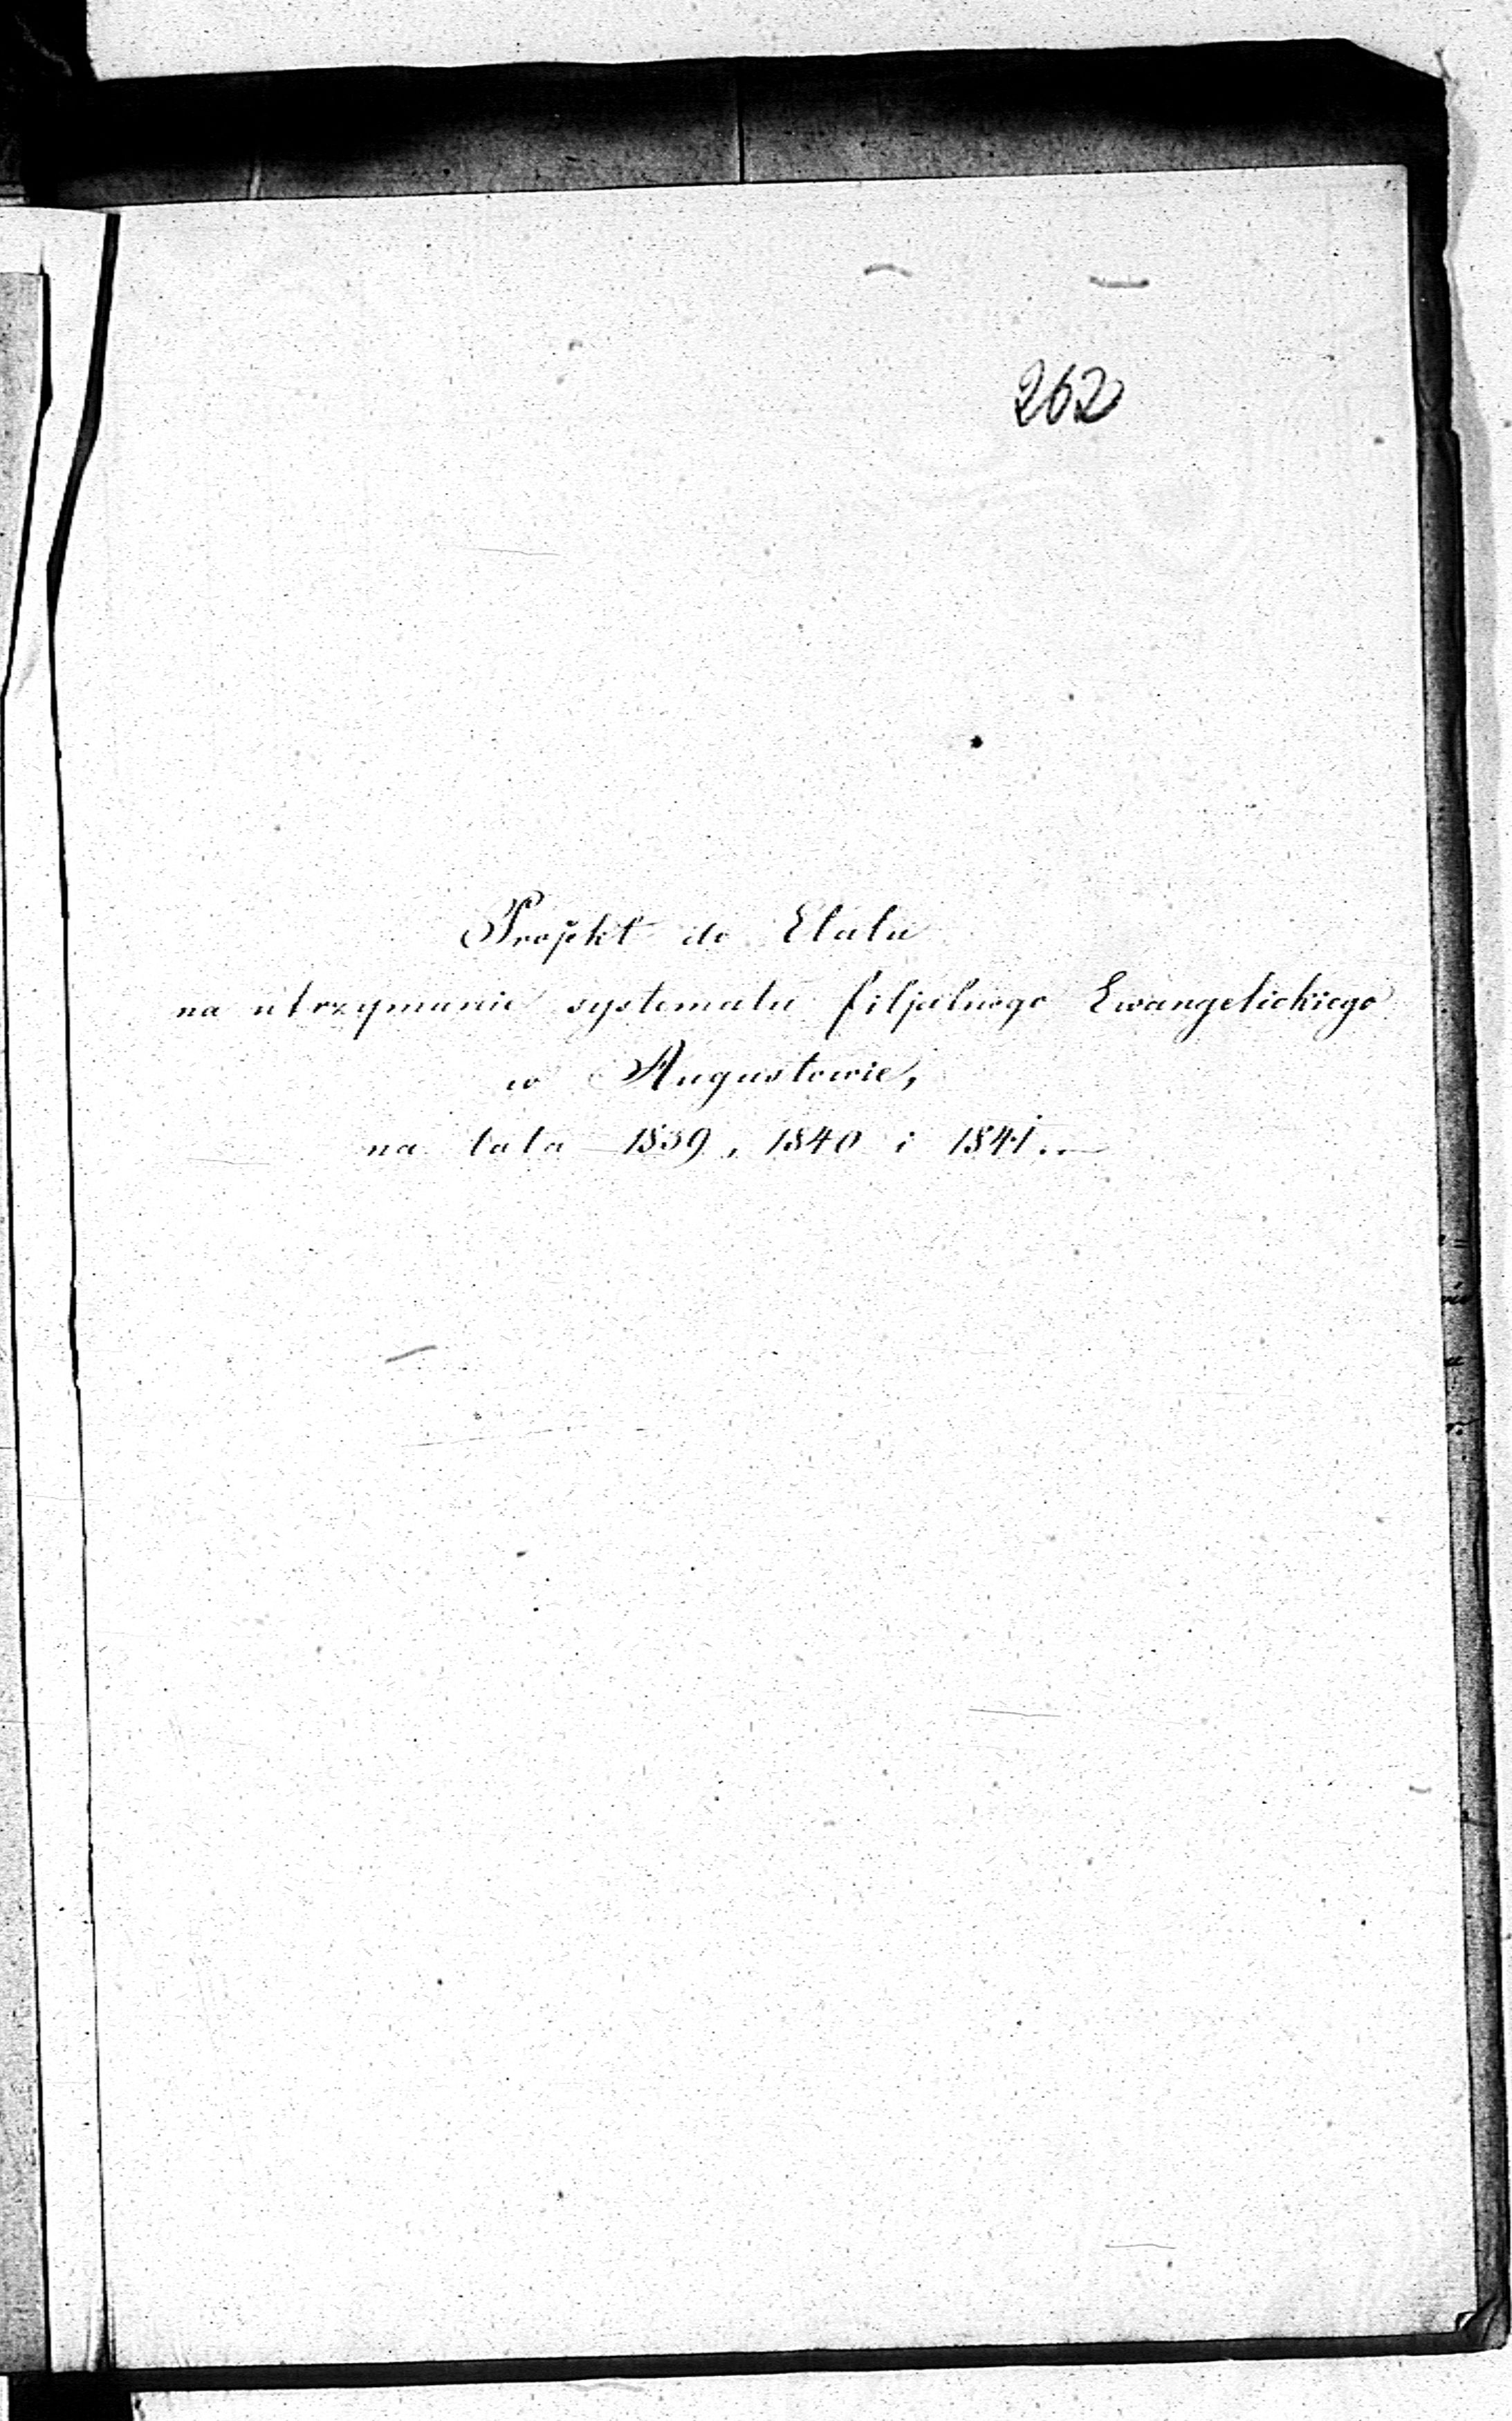 262
Projekt do Etatu
na utrzymanie systematu filjalnego Ewangelickiego
w Augustowie,
na lata 1839, 1840 i 1841.